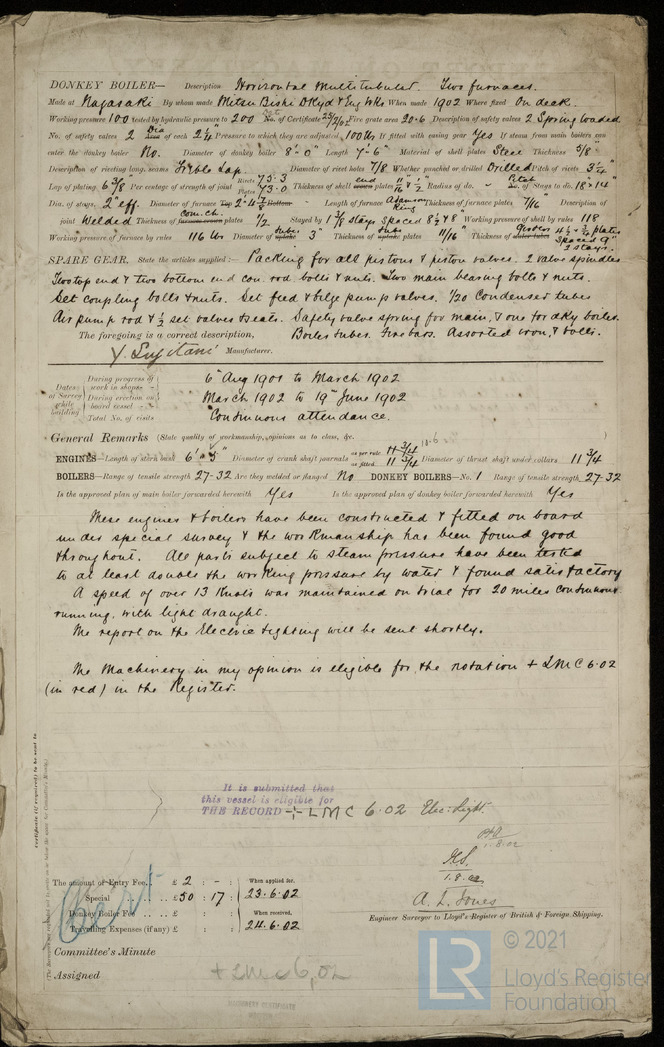 DONKEY BOILER— Description Horizontal Multitubular. Two furnaces.
Made at Nagasaki By whom made Mitsu Bishi Dkyd & Eng Wks When made 1902 Where fixed On deck.
Working pressure 100 tested by hydraulic pressure to 200 No. of Certificate Fire grate area 20.6 Description of safety valves 2 Spring loaded
No. of safety valves 2 Dia of each 2 1/4" Pressure to which they are adjusted 100 lbs If fitted with easing gear Yes If steam from main boilers can
enter the donkey boiler No. Diameter of donkey boiler 8'-0" Length 7'-6" Material of shell plates Steel Thickness 5/8"
Description of riveting long. seams Treble Lap. Diameter of rivet holes 7/8 Whether punched or drilled Drilled Pitch of rivets 3 1/4"
Lap of plating 6 3/8 Per centage of strength of joint Rivets 75.3 Plates 73.0 Thickness of shell end plates 11/16" & 1/2" Radius of do. - No. of Stays to do. 18 x 14"
Dia. of stays. 2" eff. Diameter of furnace Top 2'-10 7/8 Bottom Length of furnace Adamson Ring Thickness of furnace plates 7/16" Description of
joint Welded Thickness of com. ch. plates 1/2 Stayed by 1 3/8 stays spaced 8 1/2 x 8" Working pressure of shell by rules 118
Working pressure of furnace by rules 116 lbs Diameter of tubes 3" Thickness of tube plates 11/16" Thickness of girders 4 1/2 x 3/4 plates
spaced 9"
2 stays.
SPARE GEAR. State the articles supplied:— Packing for all pistons & piston valves. 2 valve spindles
Two top end & two bottom end con. rod bolts & nuts. Two main bearing bolts & nuts.
Set coupling bolts & nuts. Set feed & bilge pump valves. 1/20 Condenser tubes
Air pump rod & 1/2 set valves & seats. Safety valve spring for main, & one for dky boiler.
The foregoing is a correct description, Boiler tubes. Fire bars. Assorted iron, & bolts.
Y. Sugitani Manufacturer.
Dates of Survey while building
During progress of work in shops - - 6th Aug 1901 to March 1902
During erection on board vessel - - - March 1902 to 19th June 1902
Total No. of visits Continuous attendance.
General Remarks (State quality of workmanship, opinions as to class, &c.
10.6
ENGINES—Length of stern bush 6'-5" Diameter of crank shaft journals as per rule 11 3/4 as fitted 11 3/4 Diameter of thrust shaft under collars 11 3/4
BOILERS—Range of tensile strength 27-32 Are they welded or flanged No DONKEY BOILERS—No. 1 Range of tensile strength 27-32
Is the approved plan of main boiler forwarded herewith Yes Is the approved plan of donkey boiler forwarded herewith Yes
These engines & boilers have been constructed & fitted on board
under special survey & the workmanship has been found good
throughout. All parts subject to steam pressure have been tested
to at least double the working pressure by water & found satisfactory
A speed of over 13 Knots was maintained on trial for 20 miles continuous
running, with light draught.
The report on the Electric lighting will be sent shortly.
The Machinery in my opinion is eligible for the notation + LMC 6.02
(in red) in the Register.
It is submitted that
this vessel is eligible for
THE RECORD + LMC 6.02 Elec: Light.
1.8.02
1.8.02
The amount of Entry Fee. . £ 2 : - : When applied for.
Special . . . . £ 50 : 17 : 23.6.02
Donkey Boiler Fee . . . . £ : : When received.
Travelling Expenses (if any) £ : : 24.6.02
A. L. Jones
Engineer Surveyor to Lloyd's Register of British & Foreign Shipping.
Committee's Minute
Assigned + LMC 6.02
Certificate (if required) to be sent to
© 2021
Lloyd's Register
Foundation
LR